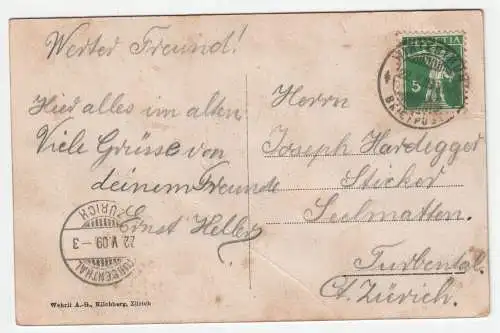 Werter Freund!
Hier alles im alten,
Viele Grüsse von
deinem Freunde
Ernst Heller
Herrn
Joseph Hardegger
Sticker
Seelmatten.
Turbental.
Ct. Zürich.
HELVETIA
5
BRIEFPOST
ZÜRICH
22.V.09-3
TURBENTHAL
Wehrli A.-G., Kilchberg, Zürich